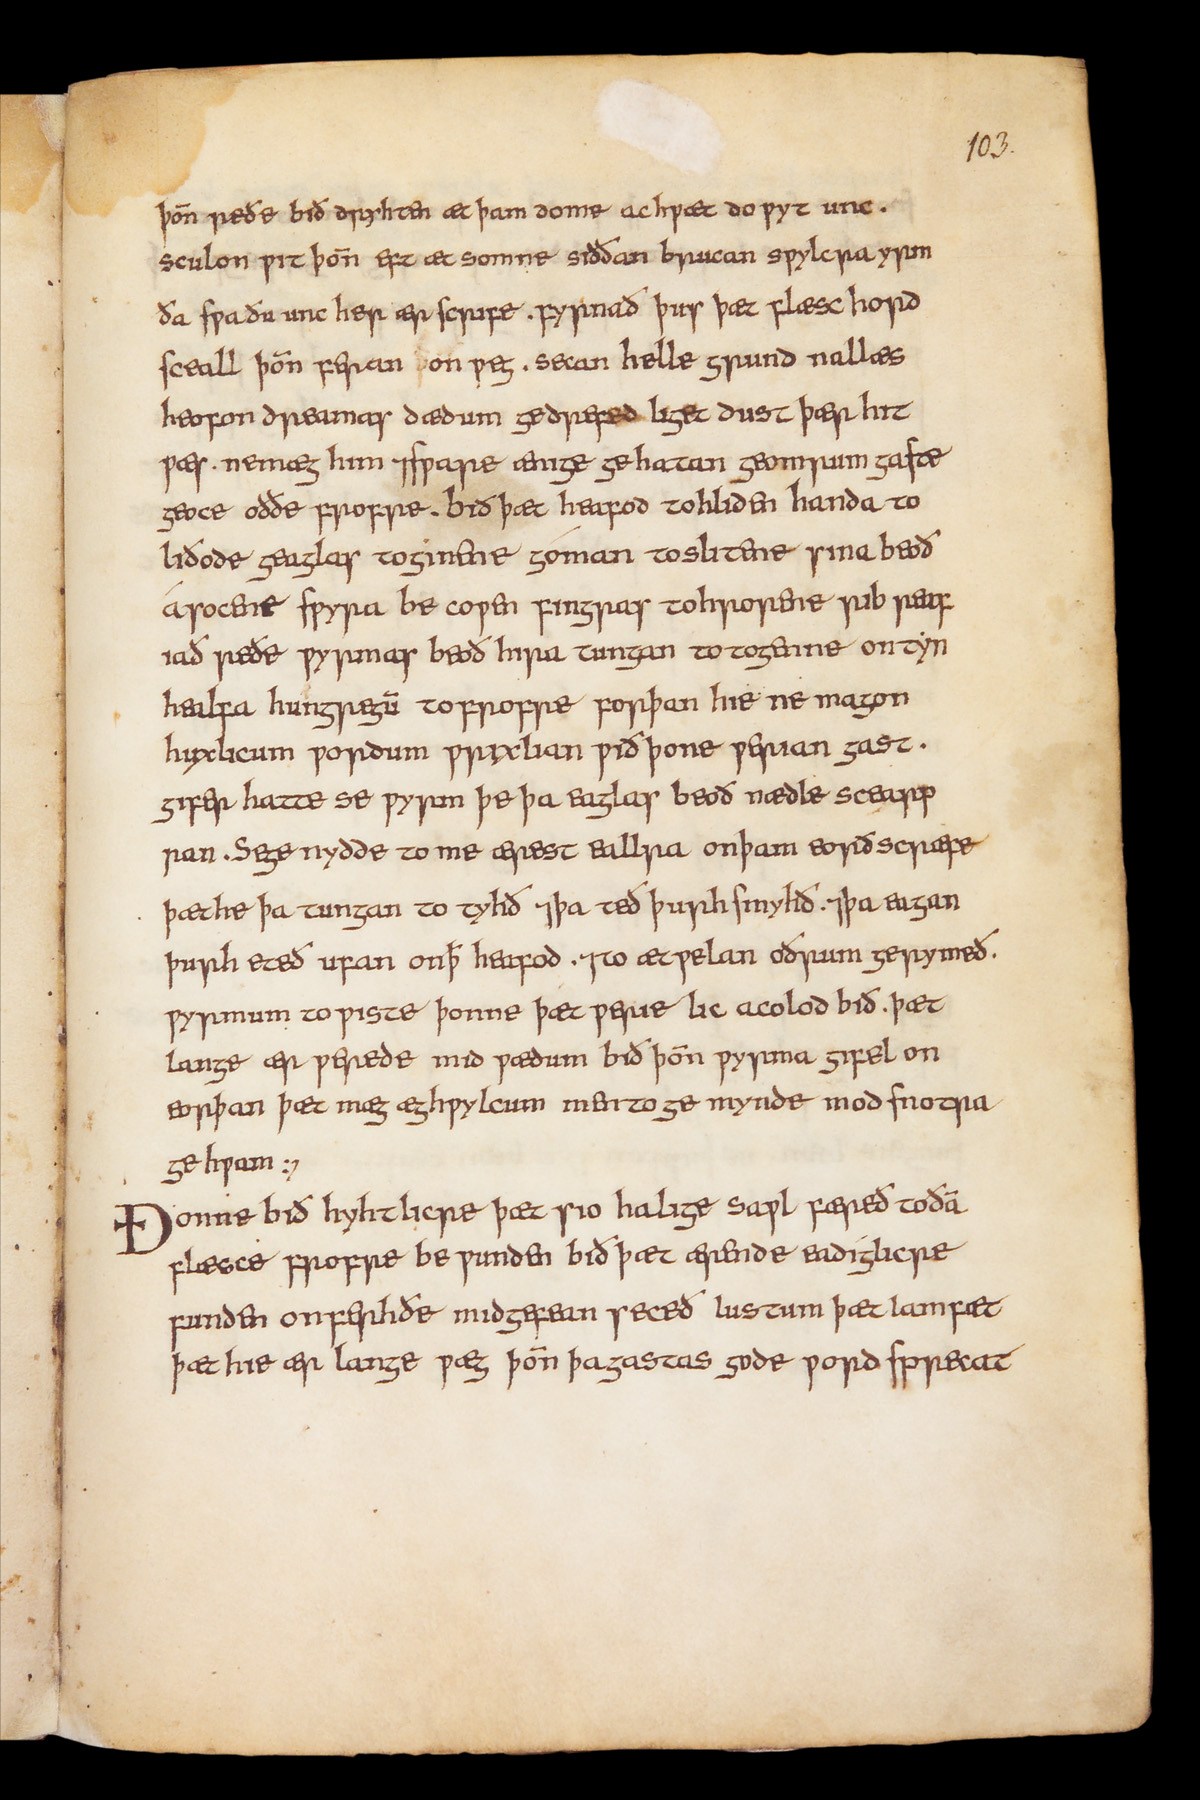 103.
þoñ reðe bið dryhten æt þam dome ac hƿæt do ƿyt unc.
sculon ƿit þoñ eft æt somne siððan brucan sƿylcra yrm
ða sƿa ðu unc her ær scrife. fyrnað þus þæt flæsc hord
sceall þoñ feran on ƿeg. secan helle grund nallæs
heofon dreamas dædum gedrefed liget dust þær hit
ƿæs. ne mæg him ⁊sƿare ænige gehatan geomrum gaste
geoce oððe frofre. bið þæt heafod tohliden handa to
liðode geaglas toginene góman toslitene sina beoð
ásocene sƿyra be coƿen fingras tohrorene rib reaf
iað reðe ƿyrmas beoð hira tungan totogenne on tyn
healfa hungregū to frofre forþan hie ne magon
huxlicum ƿordum ƿrixlian ƿið þone ƿerian gast.
gifer hatte se ƿyrm þe þa eaglas beoð nædle scearp
ran. Se genydde to me ærest eallra on þam eorðscræfe
þæt he þa tungan to tyhð ⁊þa teð þurh smyhð. ⁊þa eagan
þurh eteð ufan on ꝥ heafod. ⁊to ætƿelan oðrum gerymeð.
ƿyrmum to ƿiste þonne þæt ƿerie lic acolod bið. þæt
lange ær ƿerede mid ƿædum bið þoñ ƿyrma gifel on
eorþan þæt mæg æghƿylcum men to ge mynde mod snotra
ge hƿam :⁊
Ðonne bið hyhtlicre þæt sio halige saƿl færeð to ðā
flæsce frofre be ƿunden bið þæt ærende eadiglicre
funden on ferhðe mid gefean seceð lustum þæt lamfæt
þæt hie ær lange ƿæg þoñ þa gastas gode ƿord sprecat